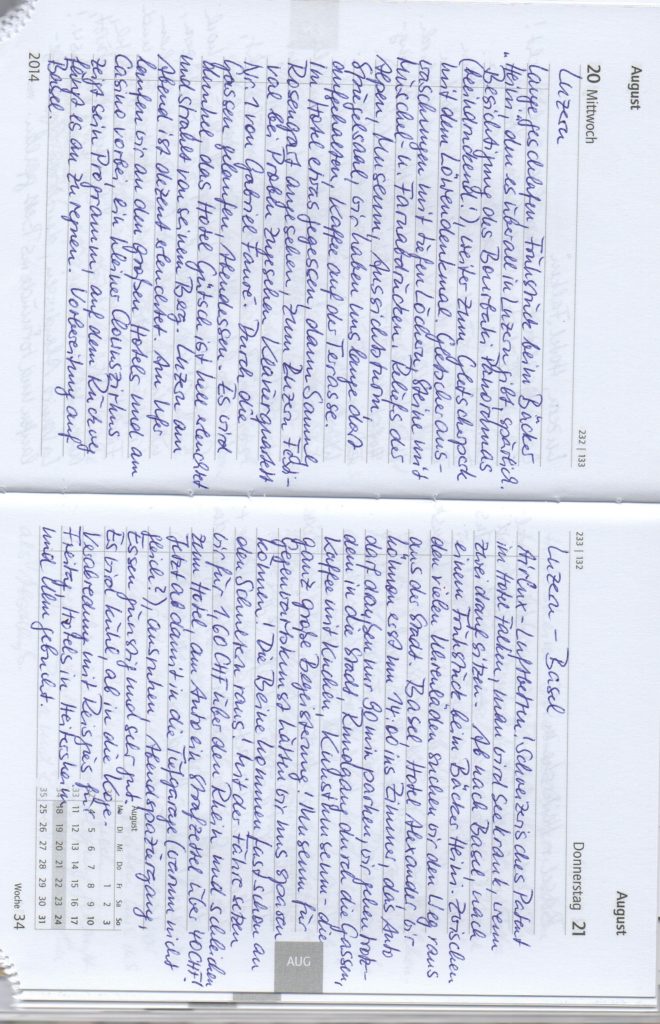 August
20 Mittwoch
232 | 133
Luzern
Lange geschlafen. Frühstück beim Bäcker
"Heini", den es überall in Luzern gibt, spartid.
Besichtigung des Bourbaki Panoramas
(beeindruckend!) weiter zum Gletscherpark
mit dem Löwendenkmal. Gletscheraus-
waschungen mit tiefen Löchern, Steine mit
Muschel- u. Farnabdrücken. Reliefs der
Alpen, Museum, Aussichtsturm,
Spiegelsaal, wir haben uns lange dort
aufgehalten, Kaffee auf der Terasse.
Im Hotel etwas gegessen, dann Samml.
Rosengart angesehen, zum Luzern Festi-
val bei Proben zugesehen. Klavierquartett
Nr. 1 von Gabriel Fauré. Durch die
Gassen gelaufen, Abendessen. Es wird
dunkel, das Hotel Gütsch ist hell erleuchtet
und strahlt von seinem Berg. Luzern am
Abend ist dezent erleuchtet. Am Ufer
laufen wir an den großen Hotels und am
Casino vorbei, ein kleiner Clownszirkus
zeigt sein Programm, auf dem Rückweg
fängt es an zu regnen. Vorbereitung auf
Basel.
2014
August
Donnerstag 21
233 | 132
Luzern - Basel
Airlux-Luftbetten! Schweizerisches Patent
im Hotel Falken, man wird seekrank, wenn
zwei darauf sitzen. Ab nach Basel, nach
einem Frühstück beim Bäcker Heini. Zwischen
den vielen Uhrenläden suchen wir den Weg raus
aus der Stadt. Basel, Hotel Alexander, wir
können erst um 14.00 ins Zimmer, das Auto
darf draußen nur 90 min parken, wir gehen trotz-
dem in die Stadt. Rundgang durch die Gassen,
Kaffee mit Kuchen, Kunstmuseum - die
ganz große Begeisterung! Museum für
Gegenwartskunst hätten wir uns sparen
können! Die Beine kommen fast schon an
den Schultern raus. Mit der Fähre setzen
wir für 1,60 CHF über den Rhein und schleichen
zum Hotel, am Auto ein Strafzettel über 40 CHF!
Jetzt ab damit in die Tiefgarage (warum nicht
gleich?), ausruhen, Abendspaziergang,
Essen günstig und sehr gut.
Es wird kühl, ab in die Koje.
Verabredung mit Reisgies für
Freitag, Hotels in Heitersheim
und Ulm gebucht.
August
Mo Di Mi Do Fr Sa So
1 2 3
5 6 7 8 9 10
33 11 12 13 14 15 16 17
18 19 20 21 22 23 24
35 25 26 27 28 29 30 31
Woche 34
AUG